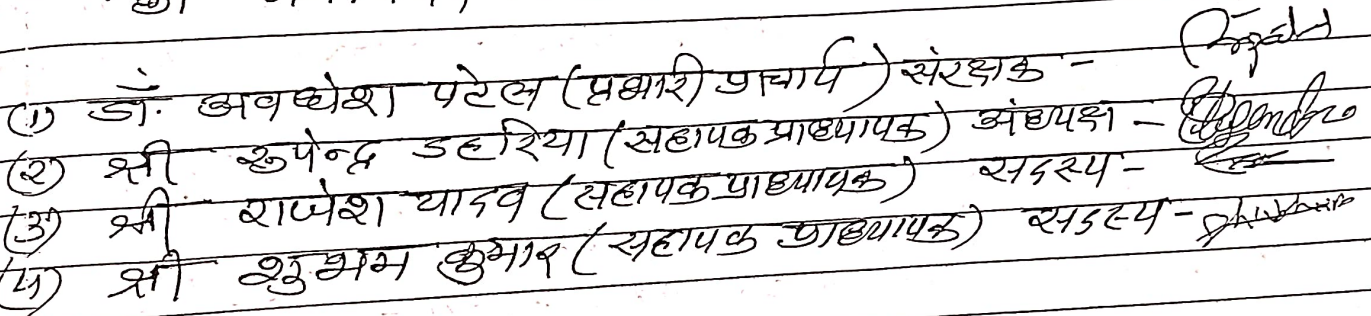 (1) डॉ. अवधेश पटेल (प्रभारी प्राचार्य) संरक्षक -
(2) श्री रुपेन्द्र डहरिया (सहायक प्राध्यापक) अध्यक्ष -
(3) श्री राजेश यादव (सहायक प्राध्यापक) सदस्य -
(4) श्री शुभम कुमार (सहायक प्राध्यापक) सदस्य -